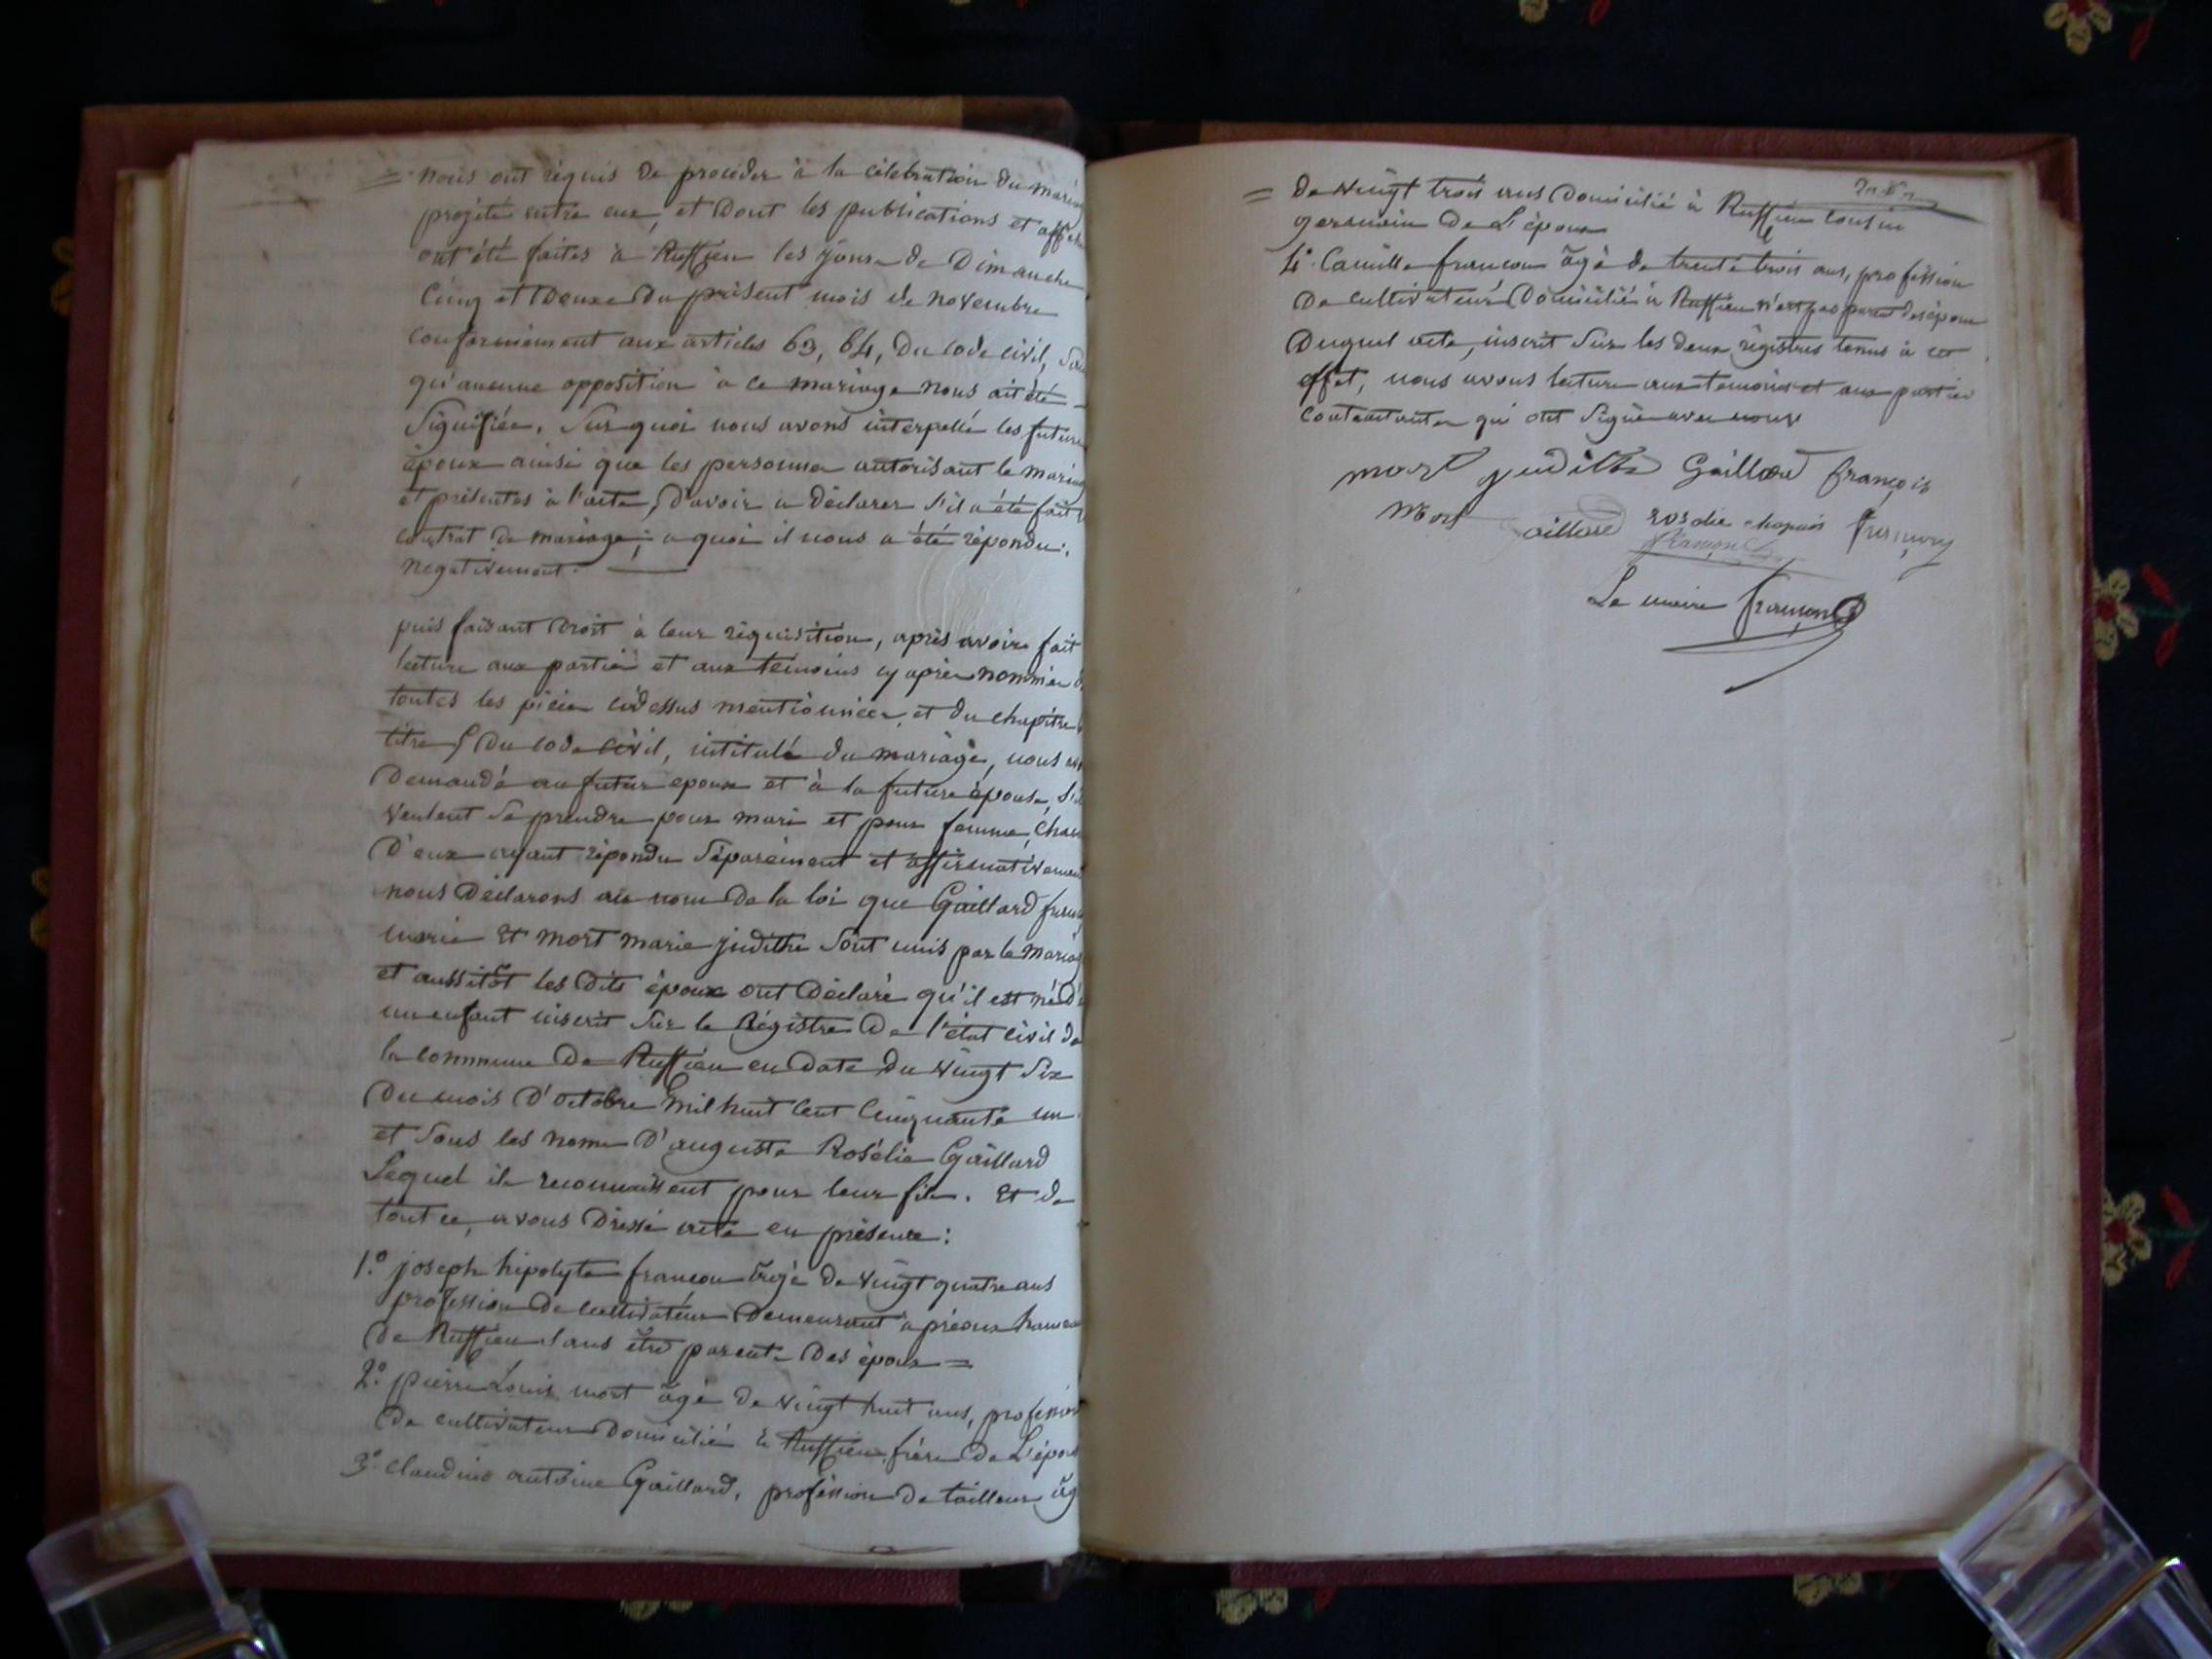 = nous ont réquis de procéder à la célébration du maria
projeté entre eux, et dont les publications et affich
ont été faites à Ruffieu les jours de Dimanche
Cinq et Douze du présent mois de novembre
conformément aux articles 63, 64, du code civil, sa
qu'aucune opposition à ce mariage nous ait été
signifiée, sur quoi nous avons interpellé les future
époux ainsi que les personnes autorisant le maria
et présentes à l'acte, d'avoir a déclarer s'il a été fait
contrat de mariage; a quoi il nous a été répondu:
négativement.
puis faisant droit à leur réquisition, après avoir fait
lecture aux parties et aux témoins cy après nommés d
toutes les pièces cidessus mentionnées, et du chapitre
titre 5 du code civil, intitulé du mariage, nous av
demandé au futur epoux et à la future épouse, s'il
veulent se prendre pour mari et pour femme, Chac
D'eux ayant répondu séparément et affirmativemen
nous déclarons au nom de la loi que Gaillard franç
marie et mort marie judithe sont unis par le mariag
et aussitôt les dits époux ont déclaré qu'il est né d'e
un enfant inscrit sur le Régistre de l'état civil de
la commune de Ruffieu en date du vingt six
du mois d'octobre mil huit cent cinquante un
et sous les noms d'auguste Rosélie Gaillard
Lequel ils reconnaissent pour leur fils. et de
tout ce, avons dressé acte en présence:
1.° joseph hipolyte françon âgé de vingt quatre ans
profession de cultivateur demeurant à préoux hamea
de Ruffieu sans être parent des époux =
2.° pierre Louis mort âgé de vingt huit ans, profession
de cultivateur domicilié à Ruffieu, frère de L'épous
3.° claudius antoine Gaillard, profession de tailleur âg
= de vingt trois ans domicilié à Ruffieu cousin
germain de L'époux
4.° Camille françon âgé de trente trois ans, profession
de cultivateur domicilié à Ruffieu n'est pas parent des époux
Duquel acte, inscrit sur les deux régistres tenus à cet
effet, nous avons lecture aux témoins et aux parties
contractantes qui ont signé avec nous
mort judithe Gaillard françois
Mort aillard rosalie chapuis
Le maire françon